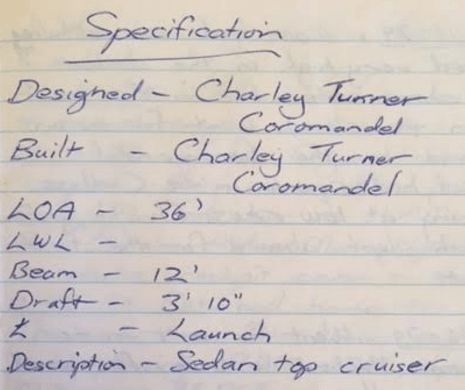 Specification
Designed - Charley Turner
Coromandel
Built - Charley Turner
Coromandel
LOA - 36'
LWL -
Beam - 12'
Draft - 3' 10"
- Launch
Description - Sedan top cruiser